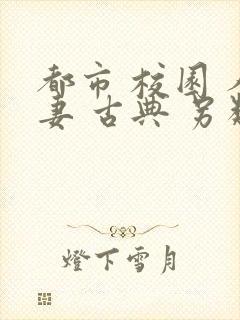 都市 校园
妻 古典 另
燈下雪月